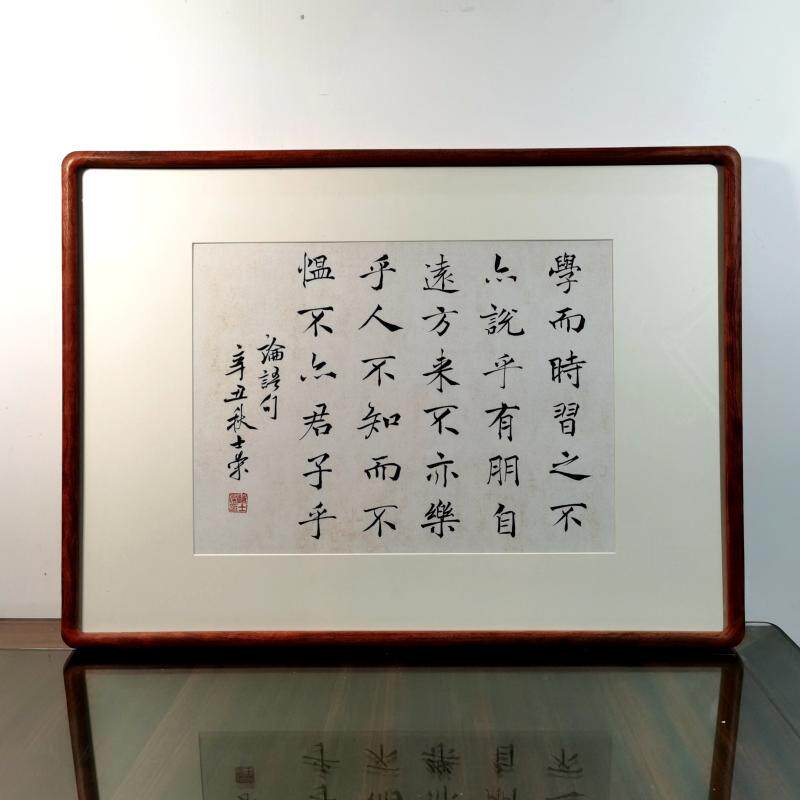 學而時習之不
亦說乎有朋自
遠方来不亦樂
乎人不知而不
愠不亦君子乎
論語句
辛丑秋士榮